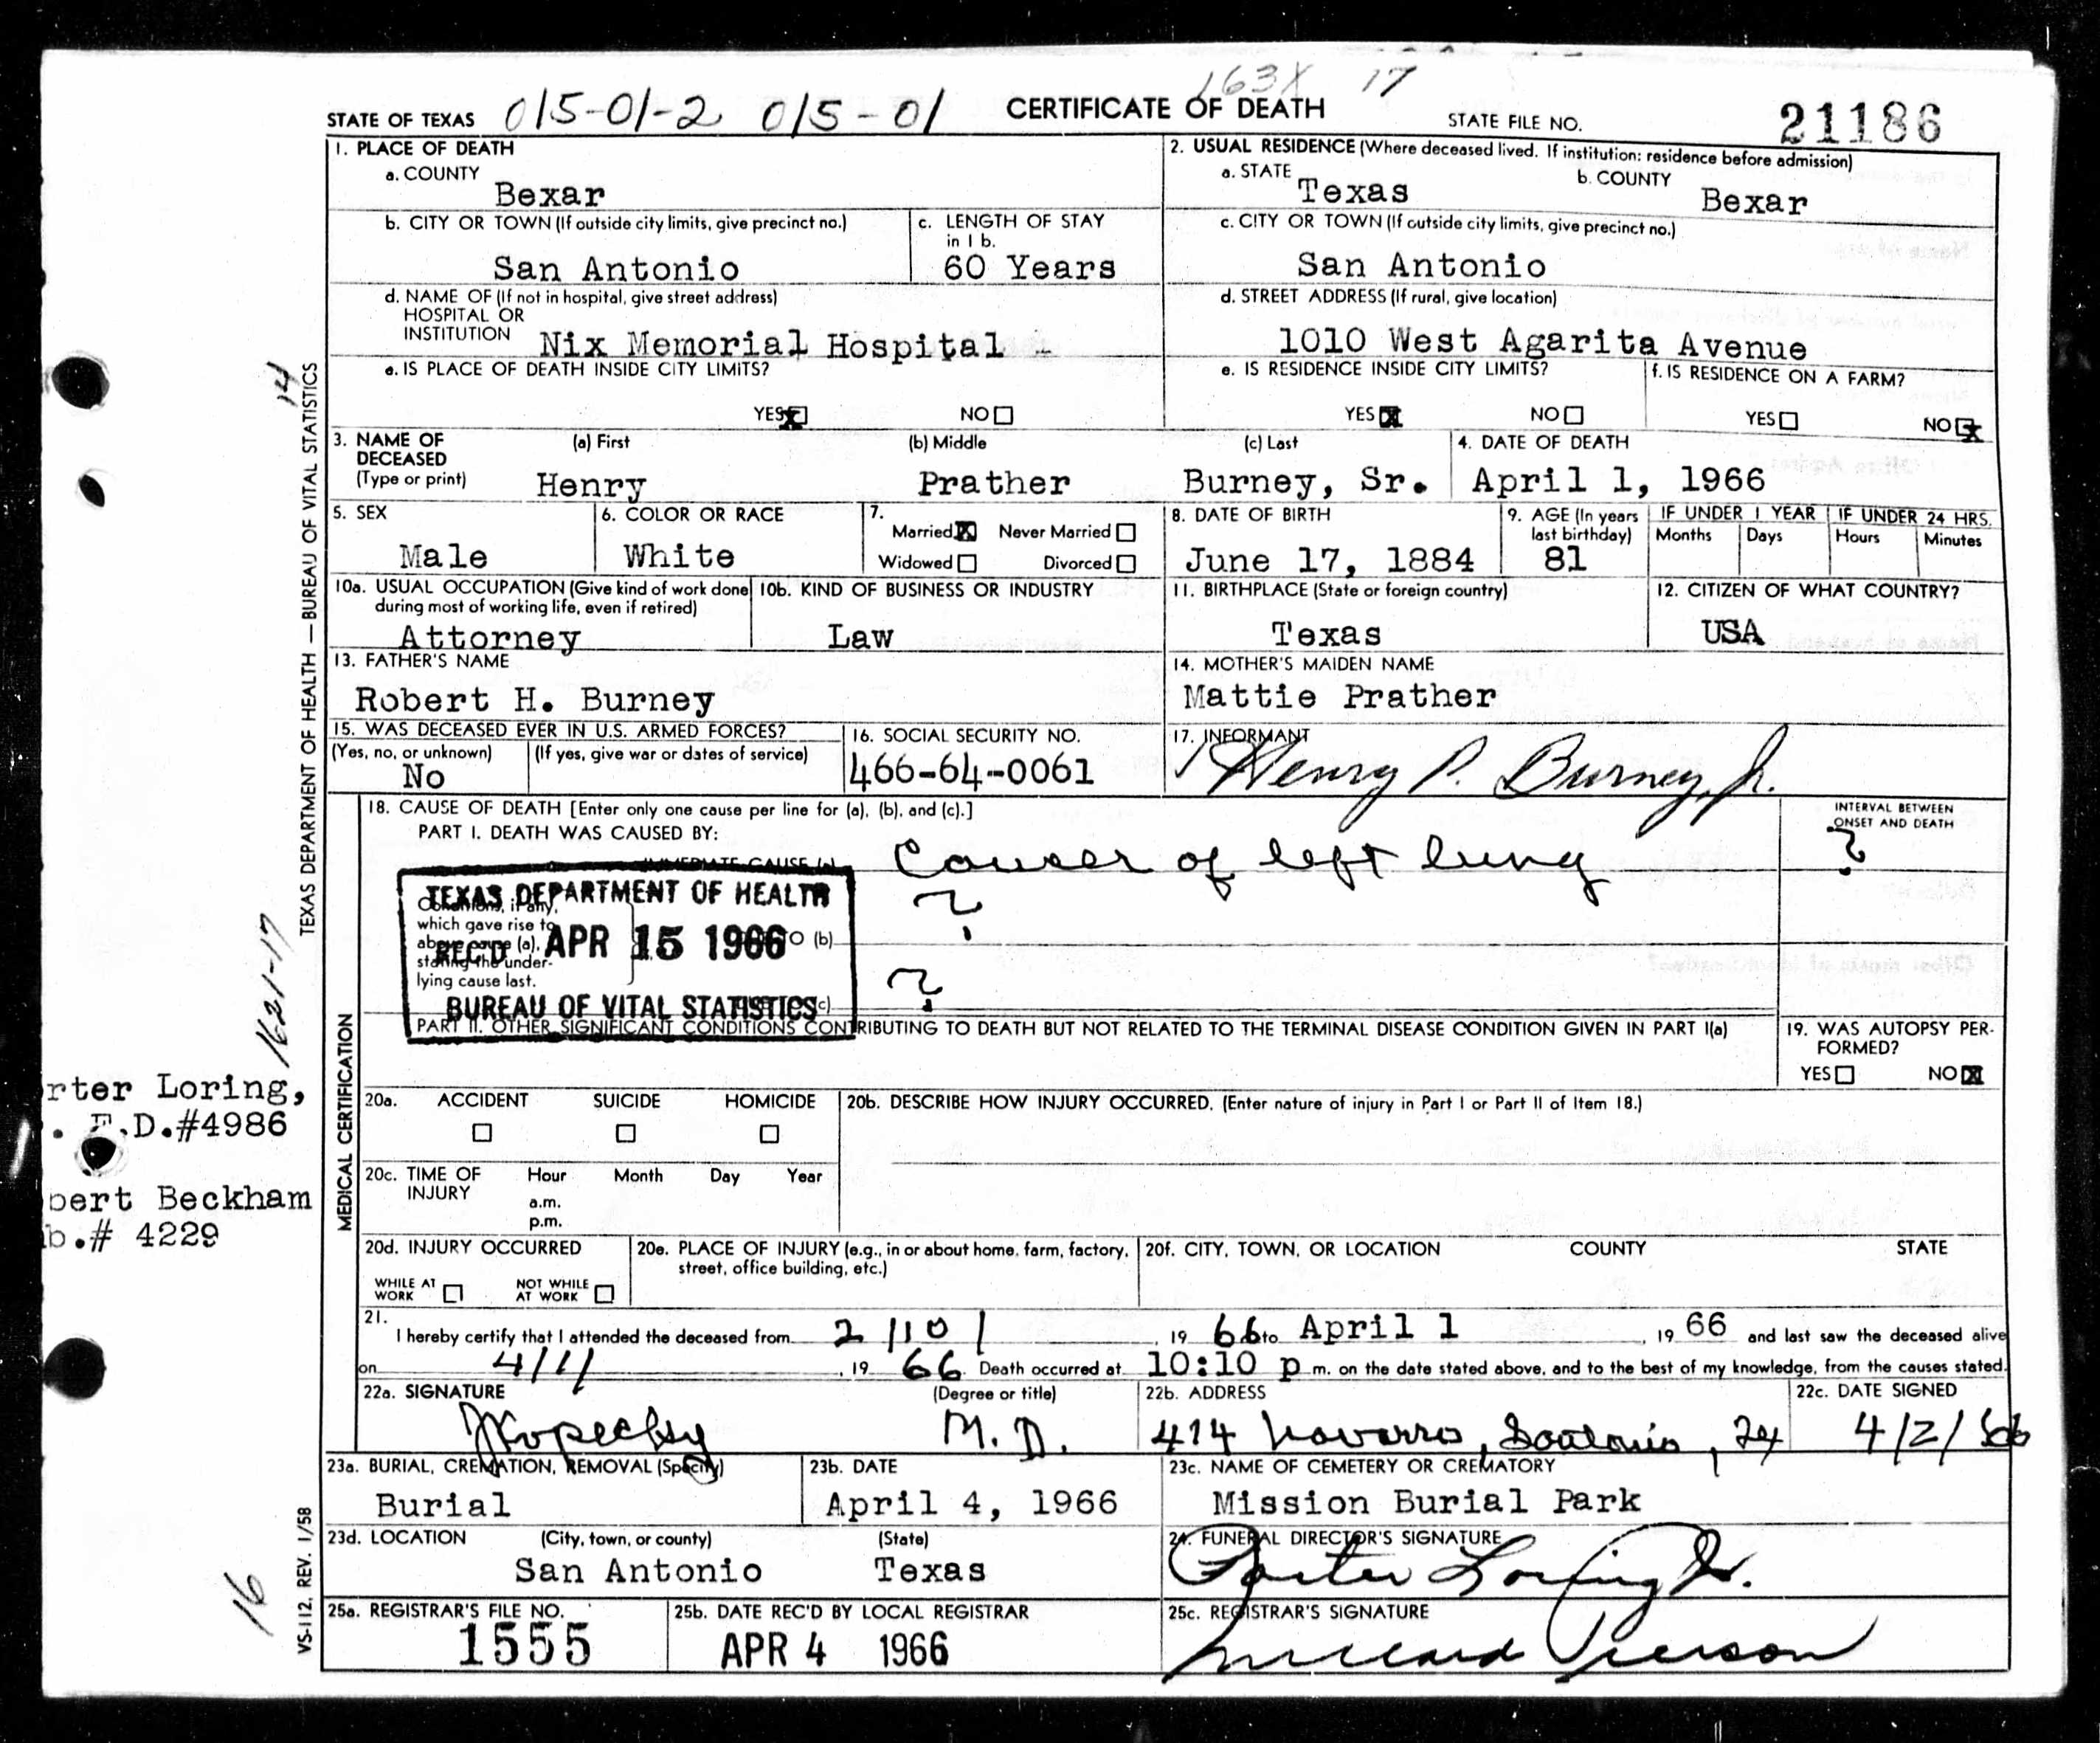 163X 17
STATE OF TEXAS 015-01-2 015-01 CERTIFICATE OF DEATH STATE FILE NO. 21186
1. PLACE OF DEATH
a. COUNTY
Bexar
2. USUAL RESIDENCE (Where deceased lived. If institution: residence before admission)
a. STATE Texas b. COUNTY Bexar
b. CITY OR TOWN (If outside city limits, give precinct no.)
San Antonio
c. LENGTH OF STAY
in 1 b.
60 Years
c. CITY OR TOWN (If outside city limits, give precinct no.)
San Antonio
d. NAME OF (If not in hospital, give street address)
HOSPITAL OR
INSTITUTION Nix Memorial Hospital
d. STREET ADDRESS (If rural, give location)
1010 West Agarita Avenue
e. IS PLACE OF DEATH INSIDE CITY LIMITS?
YES X NO
e. IS RESIDENCE INSIDE CITY LIMITS?
YES X NO
f. IS RESIDENCE ON A FARM?
YES NO X
3. NAME OF
DECEASED
(Type or print)
(a) First (b) Middle (c) Last
Henry Prather Burney, Sr.
4. DATE OF DEATH
April 1, 1966
5. SEX
Male
6. COLOR OR RACE
White
7.
Married X Never Married
Widowed Divorced
8. DATE OF BIRTH
June 17, 1884
9. AGE (In years
last birthday)
81
IF UNDER 1 YEAR
Months Days
IF UNDER 24 HRS.
Hours Minutes
10a. USUAL OCCUPATION (Give kind of work done
during most of working life, even if retired)
Attorney
10b. KIND OF BUSINESS OR INDUSTRY
Law
11. BIRTHPLACE (State or foreign country)
Texas
12. CITIZEN OF WHAT COUNTRY?
USA
13. FATHER'S NAME
Robert H. Burney
14. MOTHER'S MAIDEN NAME
Mattie Prather
15. WAS DECEASED EVER IN U.S. ARMED FORCES?
(Yes, no, or unknown) (If yes, give war or dates of service)
No
16. SOCIAL SECURITY NO.
466-64-0061
17. INFORMANT
Henry P. Burney, Jr.
18. CAUSE OF DEATH [Enter only one cause per line for (a), (b), and (c).]
PART I. DEATH WAS CAUSED BY:
IMMEDIATE CAUSE (a) Cancer of left lung
INTERVAL BETWEEN
ONSET AND DEATH
?
Conditions, if any,
which gave rise to
above cause (a),
stating the under-
lying cause last.
?
TO (b)
?
(c)
TEXAS DEPARTMENT OF HEALTH
REC'D APR 15 1966
BUREAU OF VITAL STATISTICS
PART II. OTHER SIGNIFICANT CONDITIONS CONTRIBUTING TO DEATH BUT NOT RELATED TO THE TERMINAL DISEASE CONDITION GIVEN IN PART I(a)
19. WAS AUTOPSY PER-
FORMED?
YES NO X
20a. ACCIDENT SUICIDE HOMICIDE
20b. DESCRIBE HOW INJURY OCCURRED. (Enter nature of injury in Part I or Part II of Item 18.)
20c. TIME OF
INJURY
Hour Month Day Year
a.m.
p.m.
20d. INJURY OCCURRED
WHILE AT
WORK
NOT WHILE
AT WORK
20e. PLACE OF INJURY (e.g., in or about home, farm, factory,
street, office building, etc.)
20f. CITY, TOWN, OR LOCATION COUNTY STATE
21.
I hereby certify that I attended the deceased from 2/10/, 1966 to April 1, 1966 and last saw the deceased alive
on 4/1/, 1966 Death occurred at 10:10 p m. on the date stated above, and to the best of my knowledge, from the causes stated.
22a. SIGNATURE (Degree or title)
M. D.
22b. ADDRESS
414 Navarro,
22c. DATE SIGNED
4/2/66
23a. BURIAL, CREMATION, REMOVAL (Specify)
Burial
23b. DATE
April 4, 1966
23c. NAME OF CEMETERY OR CREMATORY
Mission Burial Park
23d. LOCATION (City, town, or county) (State)
San Antonio Texas
24. FUNERAL DIRECTOR'S SIGNATURE
Porter Loring Jr.
25a. REGISTRAR'S FILE NO.
1555
25b. DATE REC'D BY LOCAL REGISTRAR
APR 4 1966
25c. REGISTRAR'S SIGNATURE
MEDICAL CERTIFICATION
TEXAS DEPARTMENT OF HEALTH — BUREAU OF VITAL STATISTICS
VS-112, REV. 1/58
14
1621-17
rter Loring,
.D.#4986
bert Beckham
b.# 4229
16